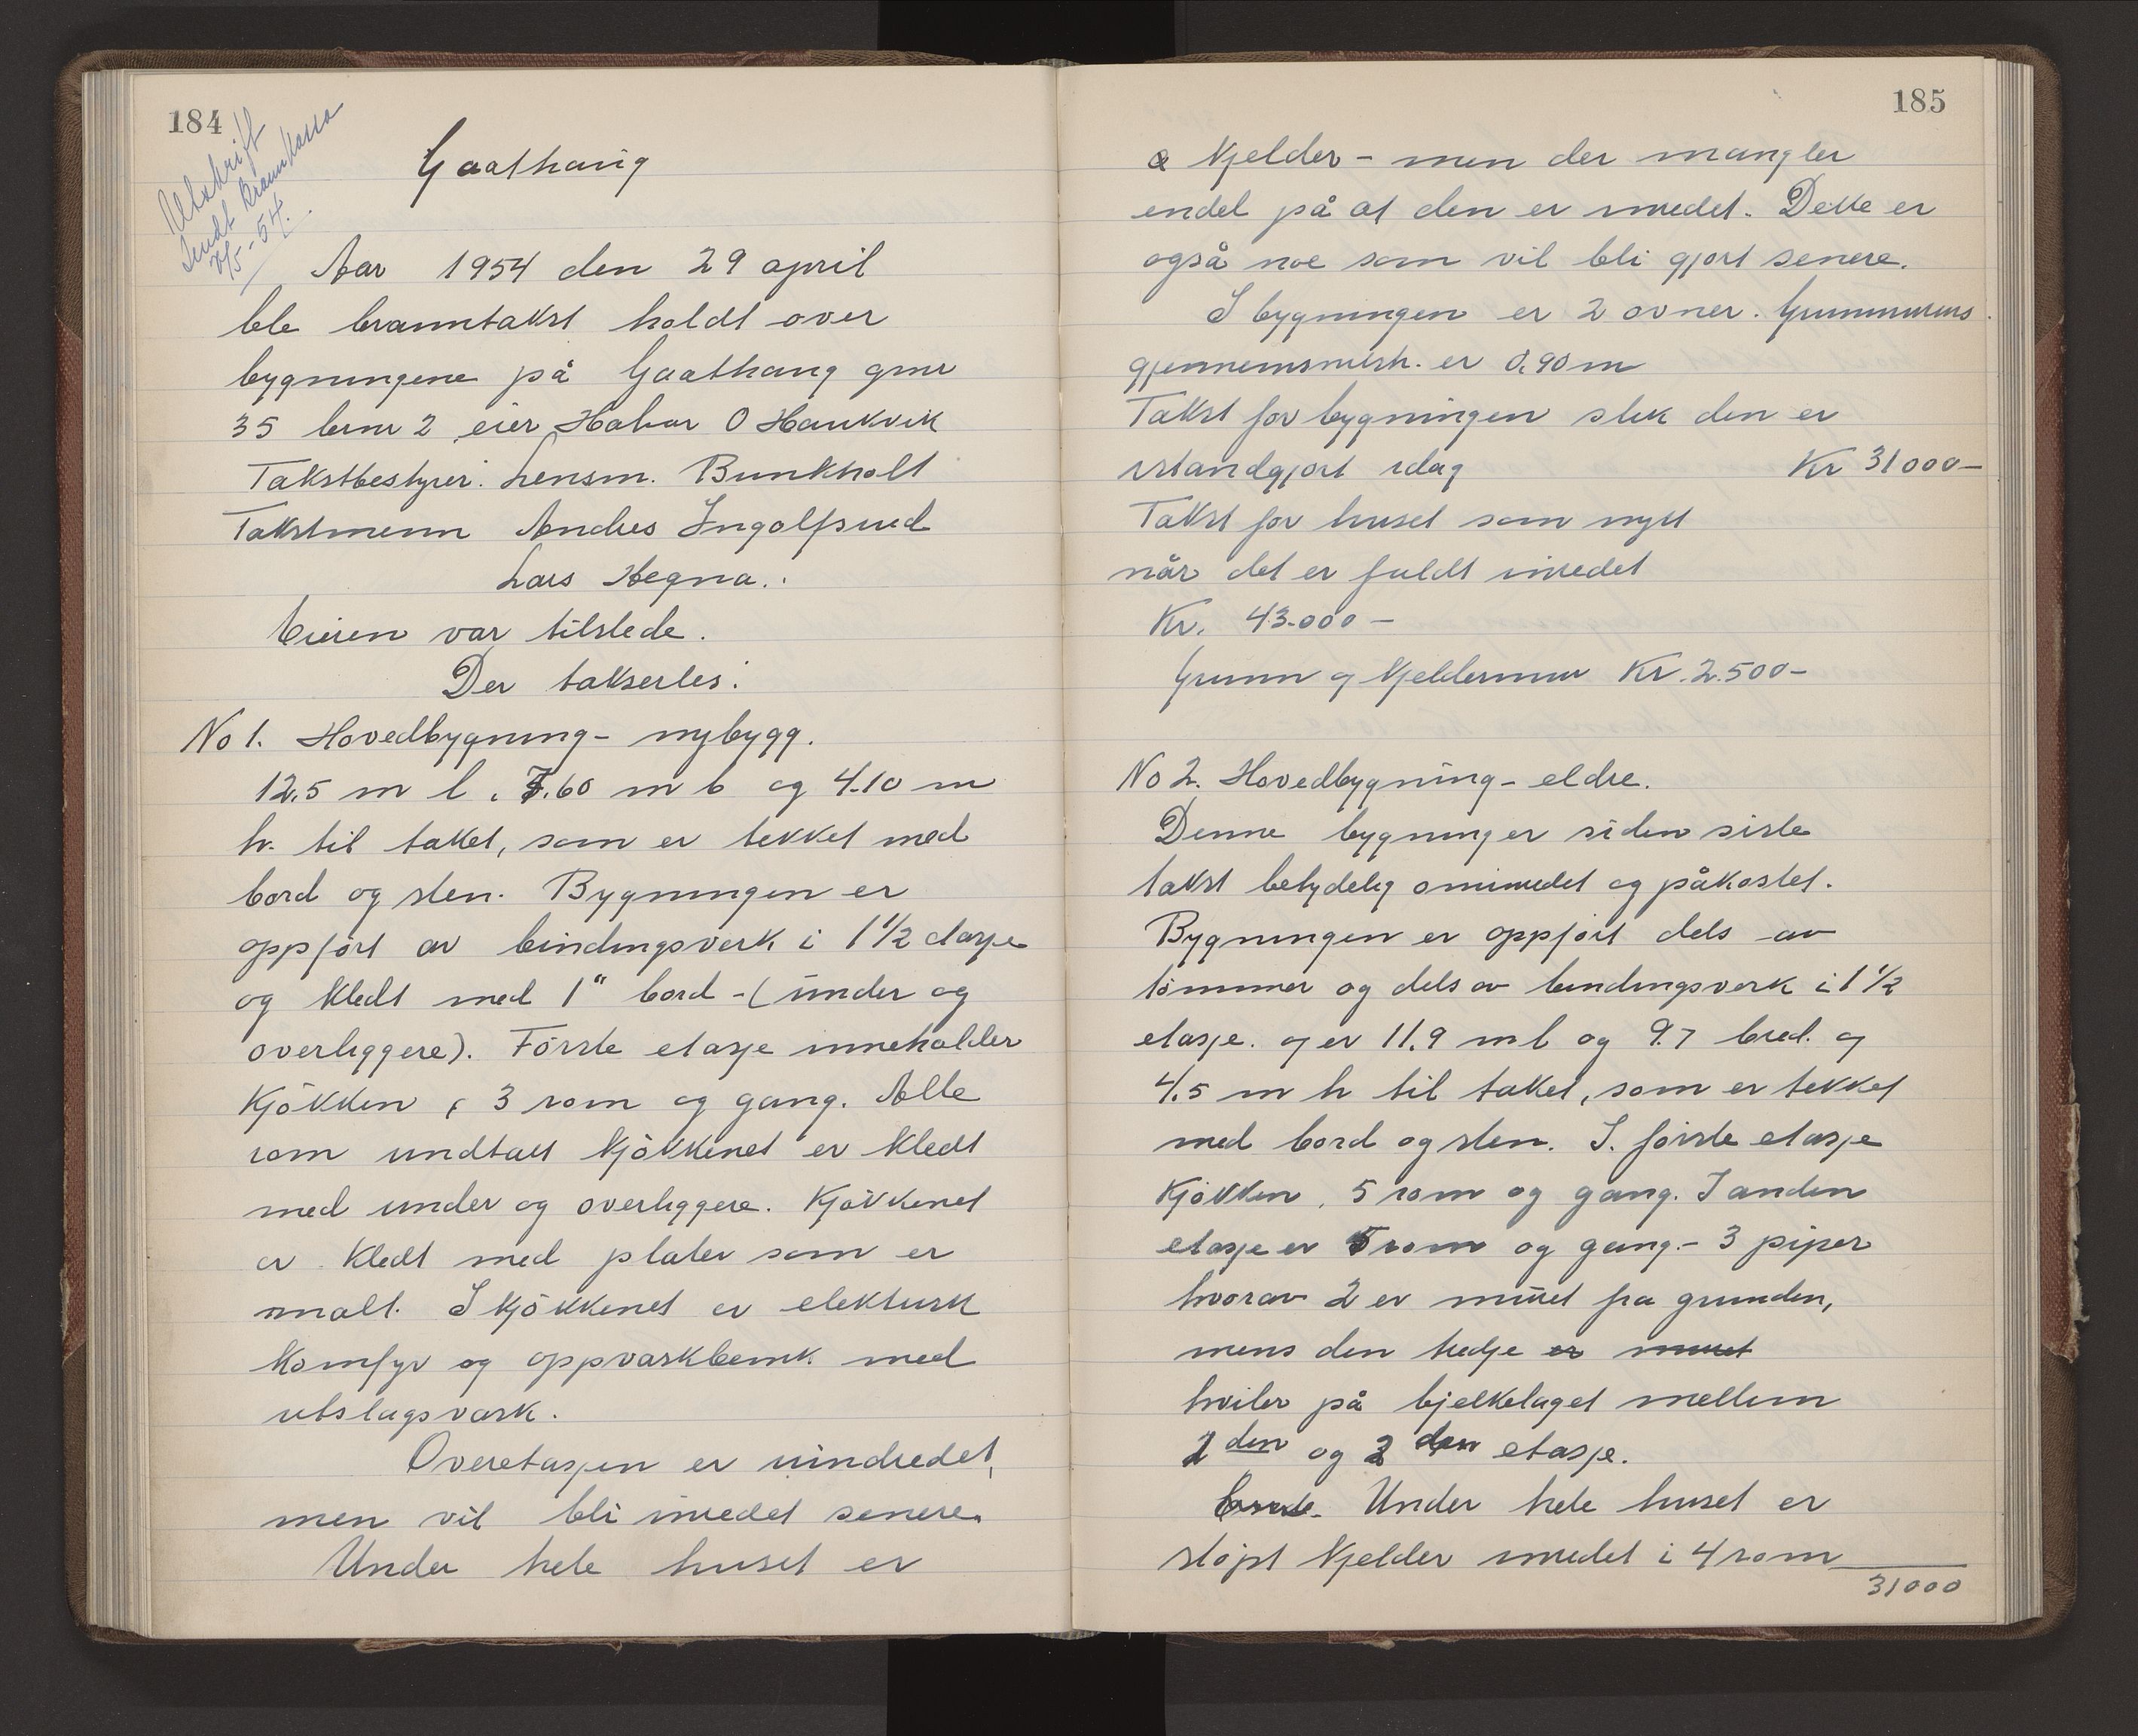 184
Utskrift
sendt Brannkassa
7/5-54.
Gaathaug
Aar 1954 den 29 april
ble branntakst holdt over
bygningene på Gaathaug gnr
35 bnr 2 eier Halvor O Haukvik
Takstbestyrer: Lensm. Bunkholt
Takstmenn Andres Ingolfsrud
Lars Hegna.
Eieren var tilstede.
Der takserles:
No 1. Hovedbygning - nybygg.
12,5 m l. 7.60 m b og 4.10 m
h. til taket, som er tekket med
bord og sten. Bygningen er
oppført av bindingsverk i 1 1/2 etasje
og kledt med 1" bord - (under og
overliggere). Første etasje inneholder
kjøkken, 3 rom og gang. Alle
rom undtatt kjøkkenet er kledt
med under og overliggere. Kjøkkenet
er kledt med plater som er
malt. I kjøkkenet er elektrisk
komfyr og oppvaskbenk med
utslagsvask.
Overetasjen er uindredet,
men vil bli inredet senere.
Under hele huset er
185
kjelder - men der mangler
endel på at den er inredet. Dette er
også noe som vil bli gjort senere.
I bygningen er 2 ovner. Grunnmurens
gjennemsnitsh. er 0,90 m
Takst for bygningen slik den er
istandgjort idag Kr 31000-
Takst for huset som nytt
når det er fuldt inredet
Kr. 43.000 -
Grunn og kjeldermur Kr. 2.500-
No 2. Hovedbygning - eldre.
Denne bygning er siden siste
takst betydelig ominredet og påkostet.
Bygningen er oppført dels av
tømmer og dels av bindingsverk i 1 1/2
etasje. og er 11.9 m l og 9.7 bred. og
4.5 m h til taket, som er tekket
med bord og sten. I. første etasje
kjøkken, 5 rom og gang. I anden
etasje er 5 rom og gang. - 3 piper
hvorav 2 er muret fra grunden,
mens den tredje er muret
hviler på bjelkelaget mellem
1 den og 2 den etasje.
Under hele huset er
støpt kjelder inredet i 4 rom
31000